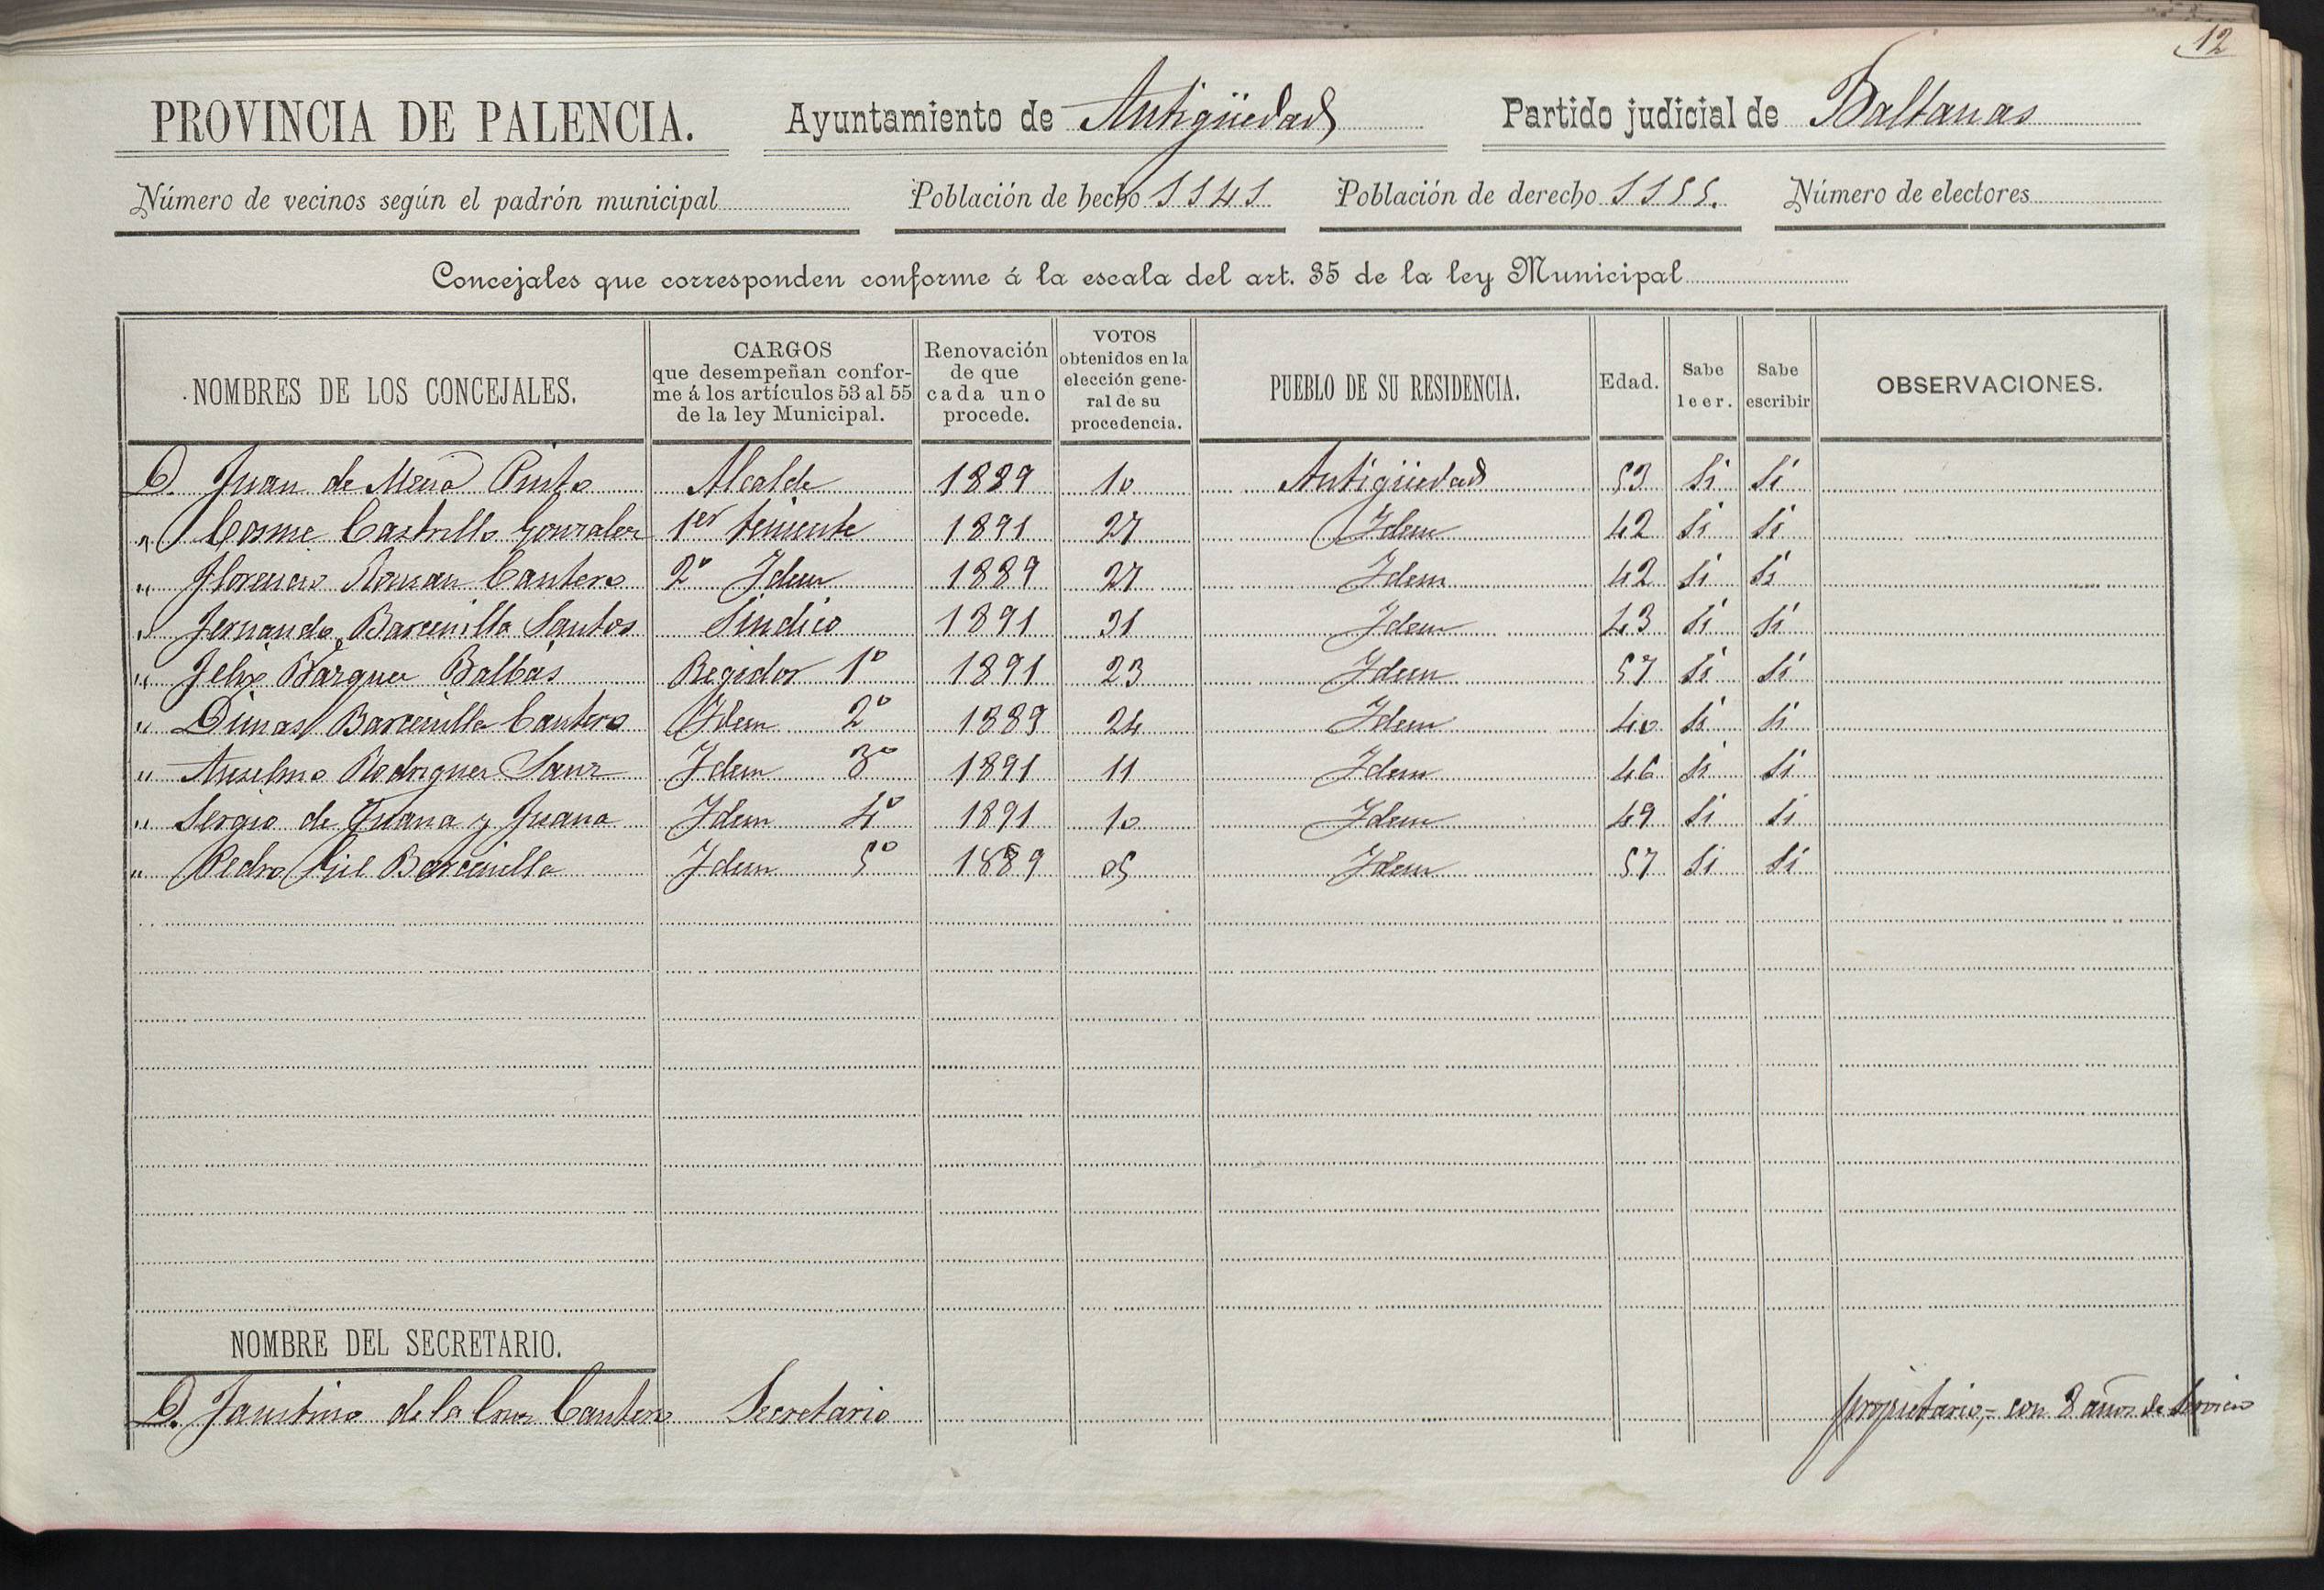 12
PROVINCIA DE PALENCIA. Ayuntamiento de Antigüedad Partido judicial de Baltanas
Número de vecinos según el padrón municipal Población de hecho 1141 Población de derecho 1155. Número de electores
Concejales que corresponden conforme á la escala del art. 35 de la ley Municipal
NOMBRES DE LOS CONCEJALES. CARGOS que desempeñan conforme á los artículos 53 al 55 de la ley Municipal. Renovación de que cada uno procede. VOTOS obtenidos en la elección general de su procedencia. PUEBLO DE SU RESIDENCIA. Edad. Sabe leer. Sabe escribir OBSERVACIONES.
D. Juan de Mena Pinto Alcalde 1889 10 Antigüedad 53 Si Si
" Cosme Castrillo Gonzalez 1er teniente 1891 27 Idem 42 Si Si
" Florencio Roman Cantero 2º Idem 1889 27 Idem 42 Si Si
" Fernando Barcenilla Santos Sindico 1891 31 Idem 43 Si Si
" Felix Barquer Balbás Regidor 1º 1891 23 Idem 57 Si Si
" Dimas Barcenilla Cantero Idem 2º 1889 24 Idem 40 Si Si
" Anselmo Rodriguez Sanz Idem 3º 1891 11 Idem 46 Si Si
" Sergio de Juana y Juana Idem 4º 1891 10 Idem 49 Si Si
" Pedro Gil Barcenilla Idem 5º 1889 05 Idem 57 Si Si
NOMBRE DEL SECRETARIO.
D. Faustino de la Cruz Cantero Secretario propietario, = con 8 años de servicio